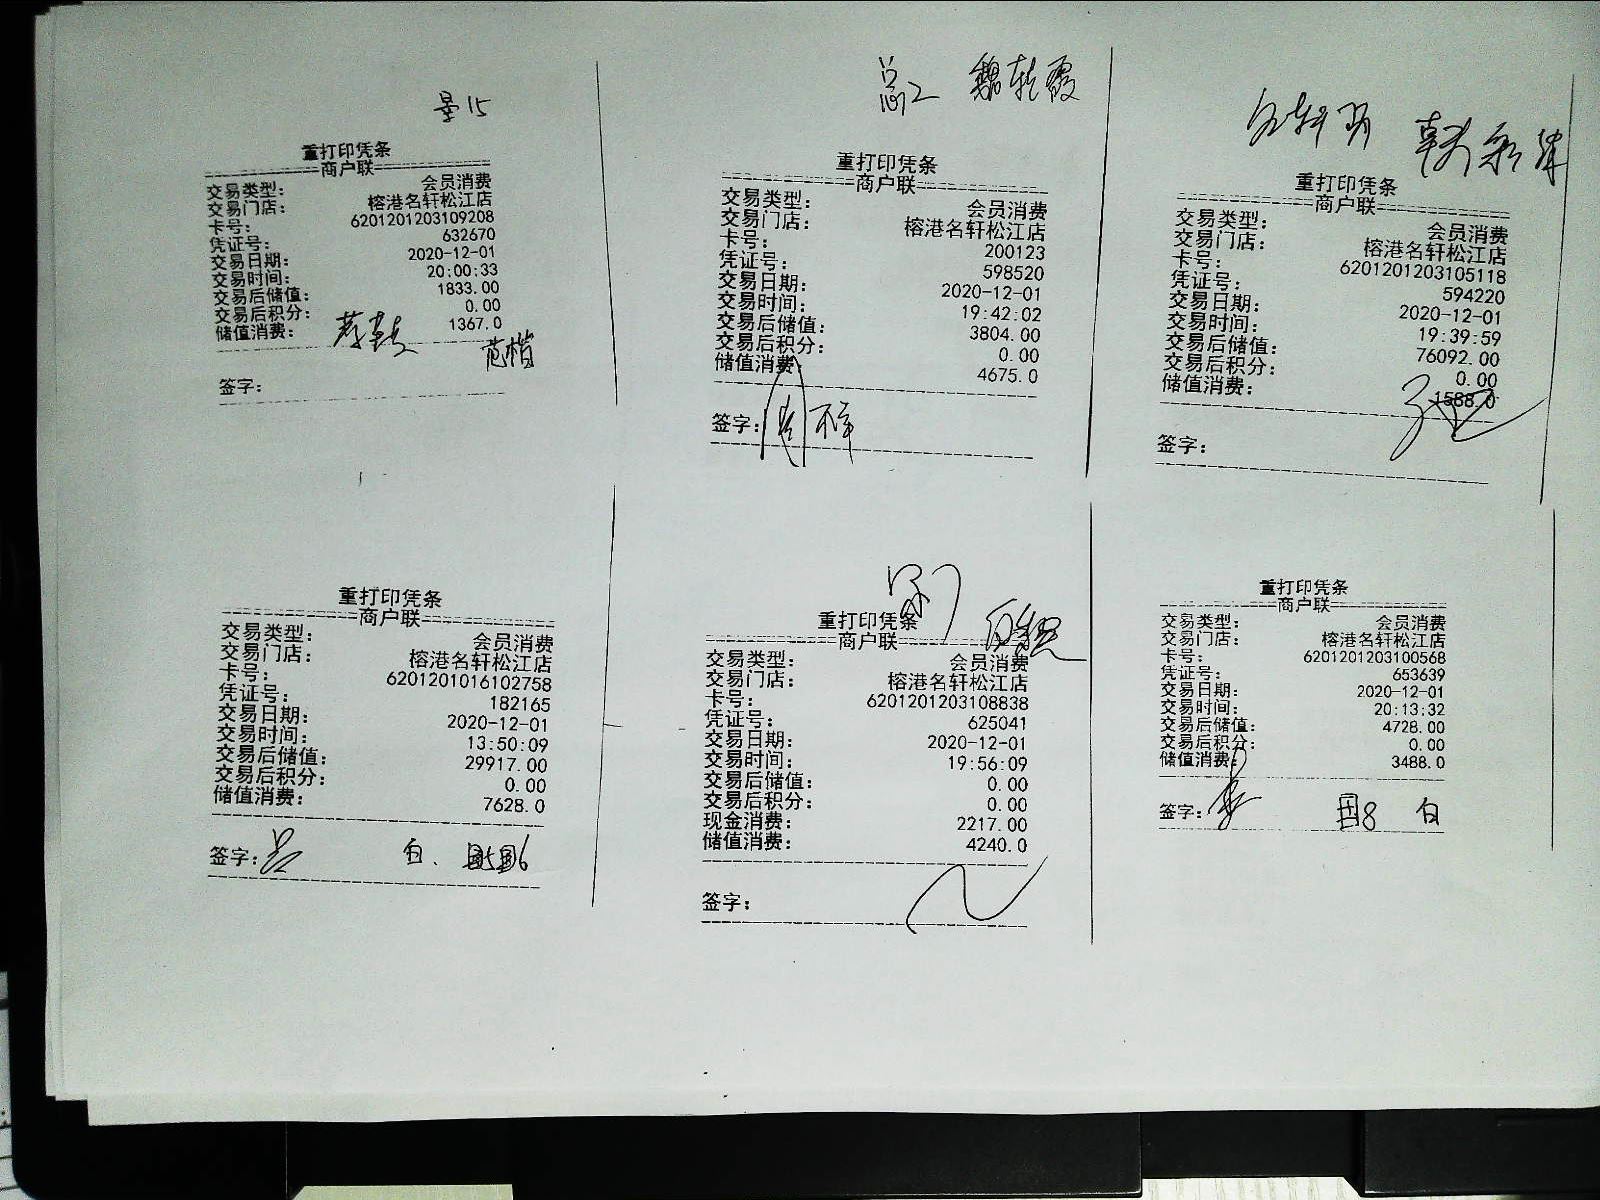 重打印凭条
商户联
交易类型: 会员消费
交易门店: 榕港名轩松江店
卡号: 6201201203109208
凭证号: 632670
交易日期: 2020-12-01
交易时间: 20:00:33
交易后储值: 1833.00
交易后积分: 0.00
储值消费: 1367.0
签字:
重打印凭条
商户联
交易类型: 会员消费
交易门店: 榕港名轩松江店
卡号: 200123
凭证号: 598520
交易日期: 2020-12-01
交易时间: 19:42:02
交易后储值: 3804.00
交易后积分: 0.00
储值消费: 4675.0
签字:
重打印凭条
商户联
交易类型: 会员消费
交易门店: 榕港名轩松江店
卡号: 6201201203105118
凭证号: 594220
交易日期: 2020-12-01
交易时间: 19:39:59
交易后储值: 76092.00
交易后积分: 0.00
储值消费: 1588.0
签字:
重打印凭条
商户联
交易类型: 会员消费
交易门店: 榕港名轩松江店
卡号: 6201201016102758
凭证号: 182165
交易日期: 2020-12-01
交易时间: 13:50:09
交易后储值: 29917.00
交易后积分: 0.00
储值消费: 7628.0
签字:
重打印凭条
商户联
交易类型: 会员消费
交易门店: 榕港名轩松江店
卡号: 6201201203108838
凭证号: 625041
交易日期: 2020-12-01
交易时间: 19:56:09
交易后储值: 0.00
交易后积分: 0.00
现金消费: 2217.00
储值消费: 4240.0
签字:
重打印凭条
商户联
交易类型: 会员消费
交易门店: 榕港名轩松江店
卡号: 6201201203100568
凭证号: 653639
交易日期: 2020-12-01
交易时间: 20:13:32
交易后储值: 4728.00
交易后积分: 0.00
储值消费: 3488.0
签字: